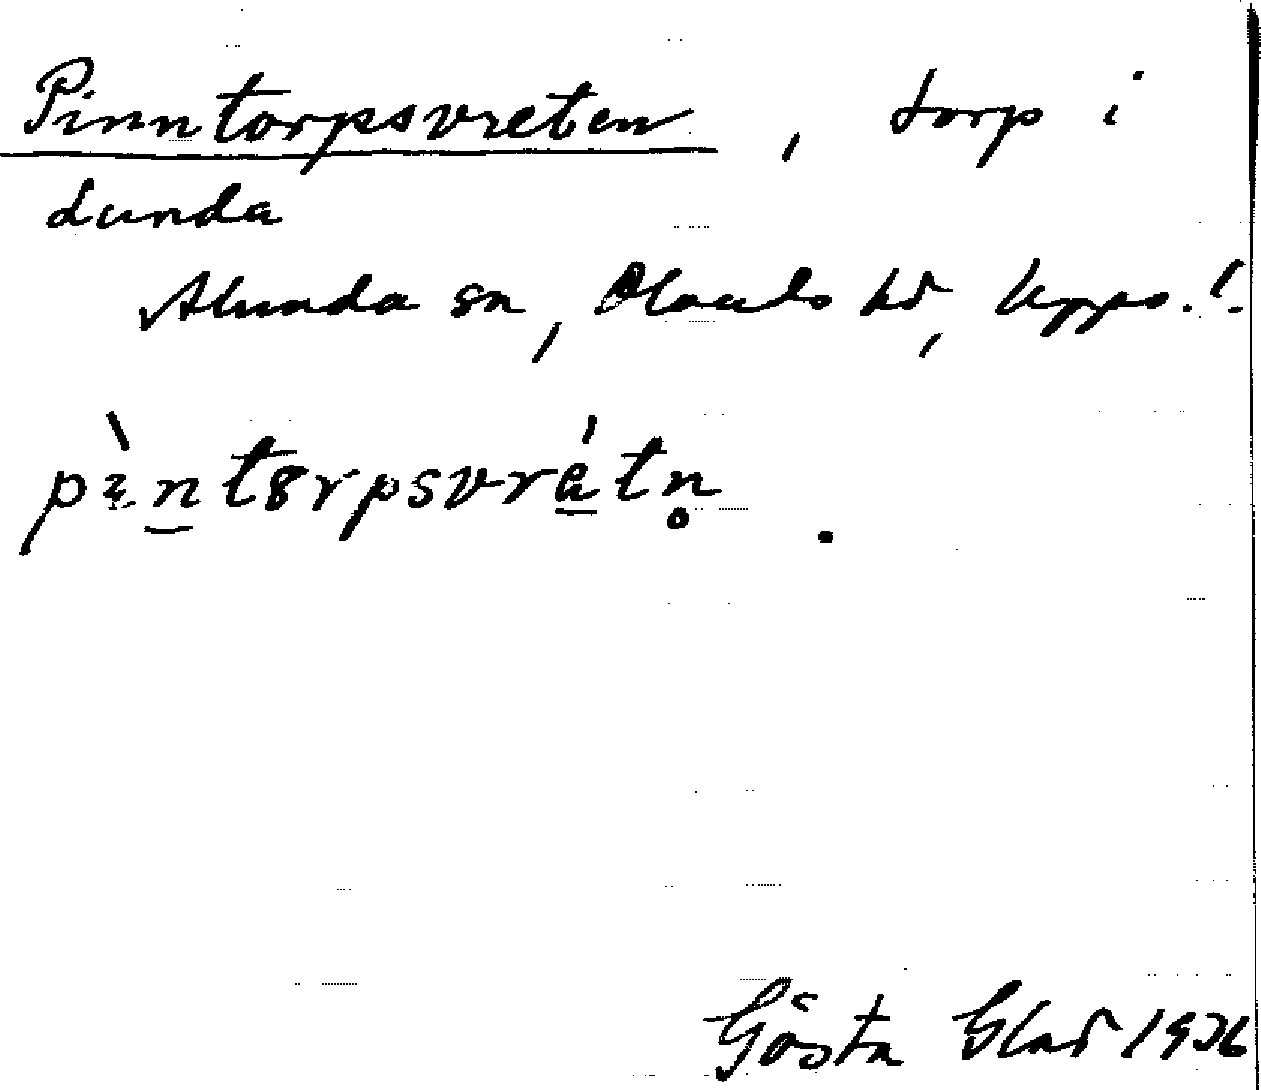 Pinntorpsvreten, torp i
Lunda
Alunda sn, Olands hd, Upps. l.
pìntorpsvrátn̥.
Gösta Glad 1926